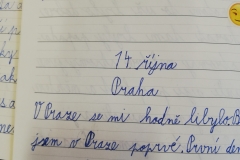 14 října
Praha
V Praze se mi hodně líbylo. B
jsem v Praze poprvé. První den